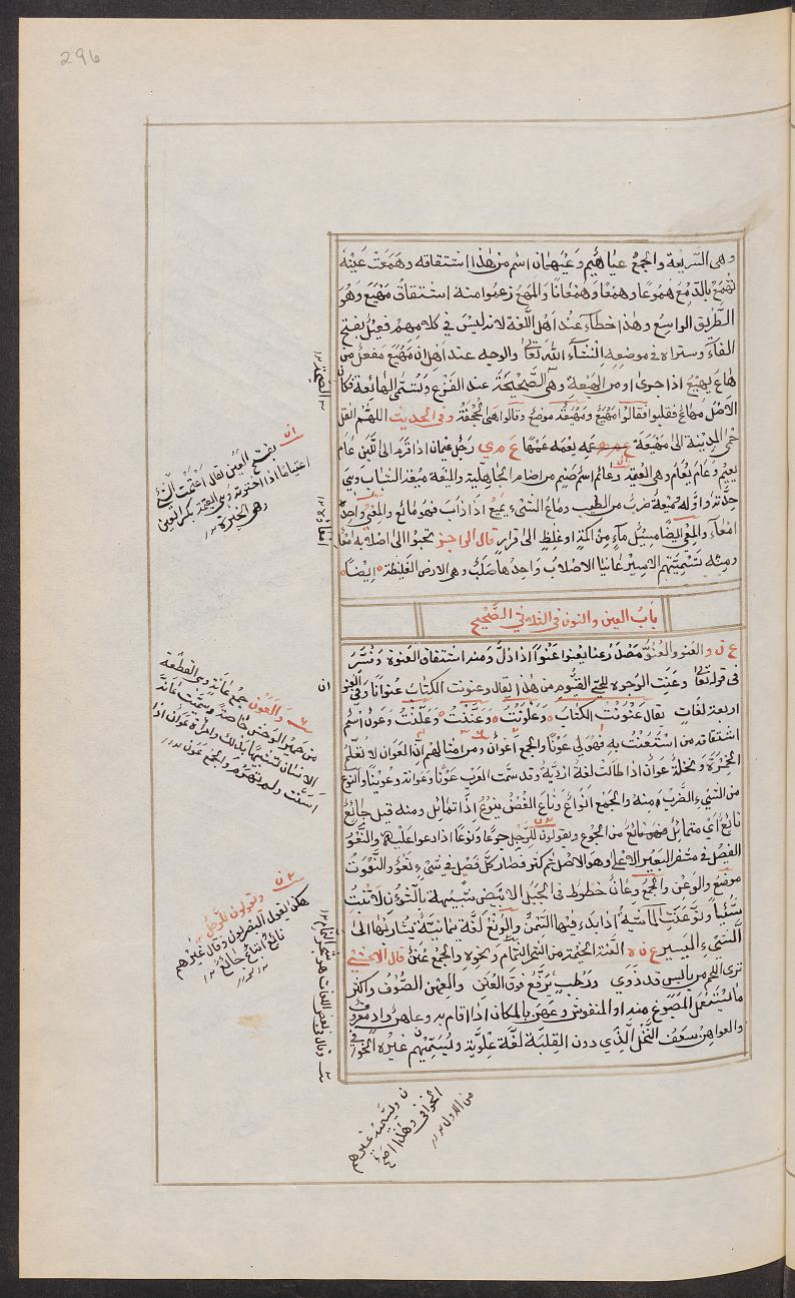 296
وهى السريعة والجمع عياهيم وعيهمان اسم من هذا اشتقاقه وهمعت عينه
تهمع بالدمع هموعا وهمعا وهمعانا والمهيع زعموا منه اشتقاق مهيع وهو
الطريق الواسع وهذا خطاء عند اهل اللغة لانه ليس فى كلامهم فعيل بفتح
الفاء وستراه فى موضعه انشاء الله تعالى والوجه عند اهل ان مهيع مفعل من
هاع يهيع اذا جرى او من الهيعة وهى الصحيحة عند الفزع وتسمى الهائعة فكان
الاصل مهاع فقلبوا فقالوا مهيع ومهيعة موضع وقالوا هى الجحفة وفى الحديث اللهم انقل
حمى المدينة الى مهيعة عمه يعمه عمها ع م ى رجل عيمان اذا قرم الى اللبن عام
يعيم وعام يعام وهى العيمة وعائم اسم صنم من اصنام الجاهلية والميعة ميعة الشباب وهى
حدته واوله وميعة ضرب من الطيب وماع الشىء يميع اذا ذاب فهو مائع والمعى واحد
امعاء والمعى ايضا مسيل ماء من اكمة او غلظ الى قرار قال الراجز تحبوا الى اصلابه امعا
ومنه تسميتهم الاسير عانيا الاصلاب واحدها صلب وهى الارض الغليظة ايضا
باب العين والنون فى الثلاثى الصحيح
ع ن و العنو والعنو مصدر عنا يعنوا عنوا اذا ذل ومنه اشتقاق العنوة وفسر
فى قوله تعالى وعنت الوجوه للحى القيوم من هذا يقال وعنونت الكتاب عنوانا وفى العنوان
اربعة لغات يقال عنونت الكتاب وعلونت وعننت وعلنت وعون اسم
اشتقاقه من استعنت به فهو لى عونا والجمع اعوان ومن امثالهم ان العوان لا تعلم
الخمرة ونخلة عوان اذا طالت لغة ازدية وقد سمت العرب عونا وعوانة وعوينا والنوع
من الشىء الضرب ومنه والجمع انواع وناع الغصن ينوع اذا تمايل ومنه قيل جائع
نائع اى متمايل من الجوع ويقولون للرجل جوعا ونوعا اذا دعوا عليه والنعو
الفصل فى مشفر البعير الاعلى وهو الاصل ثم كثر فصار كل فصل فى شىء نعو والنعوت
موضع والوعن والجمع وعان خطوط فى الجبل الابيض شبيهة بالشؤن لا تنبت
شيئا وتوعنت الماشية اذا بدء فيها السمن والونع لغة يمانية يشار بها الى
الشىء اليسير ع ن ه العنة الخيمة من الثمام ونحوه والجمع عنن قال الاعشى
ترى اللحم من يابس قد ذوى ورطب يرفع فوق العنن والعهن الصوف واكثر
ما يستعمل المصبوغ منه او المنفوش وعهن بالمكان اذا اقام به وعاهن واد معروف
والعواهن سعف النخل الذى دون القلبة لغة علوية ويسميهن غيره الخوافى
بفتح العين يقال اعتمت الشئ
اعتياما اذا اخترته وهى العيمة بكسر العين
وهى الخيرة ١٢
والعون جمع عانة وهى القطعة
من حمير الوحش خاصة وسميت عانة
الانسان تشبيها بذلك وامراة عوان اذا
اسنت ولم تهرم والجمع عون ١٢
ويقولون للرجل
هكذا يقول البصريون وقال غيرهم
نائع اتباع جائع ١٢
ويسميه غيرهم
الخوافى وهذا اصح
من الاول ١٢